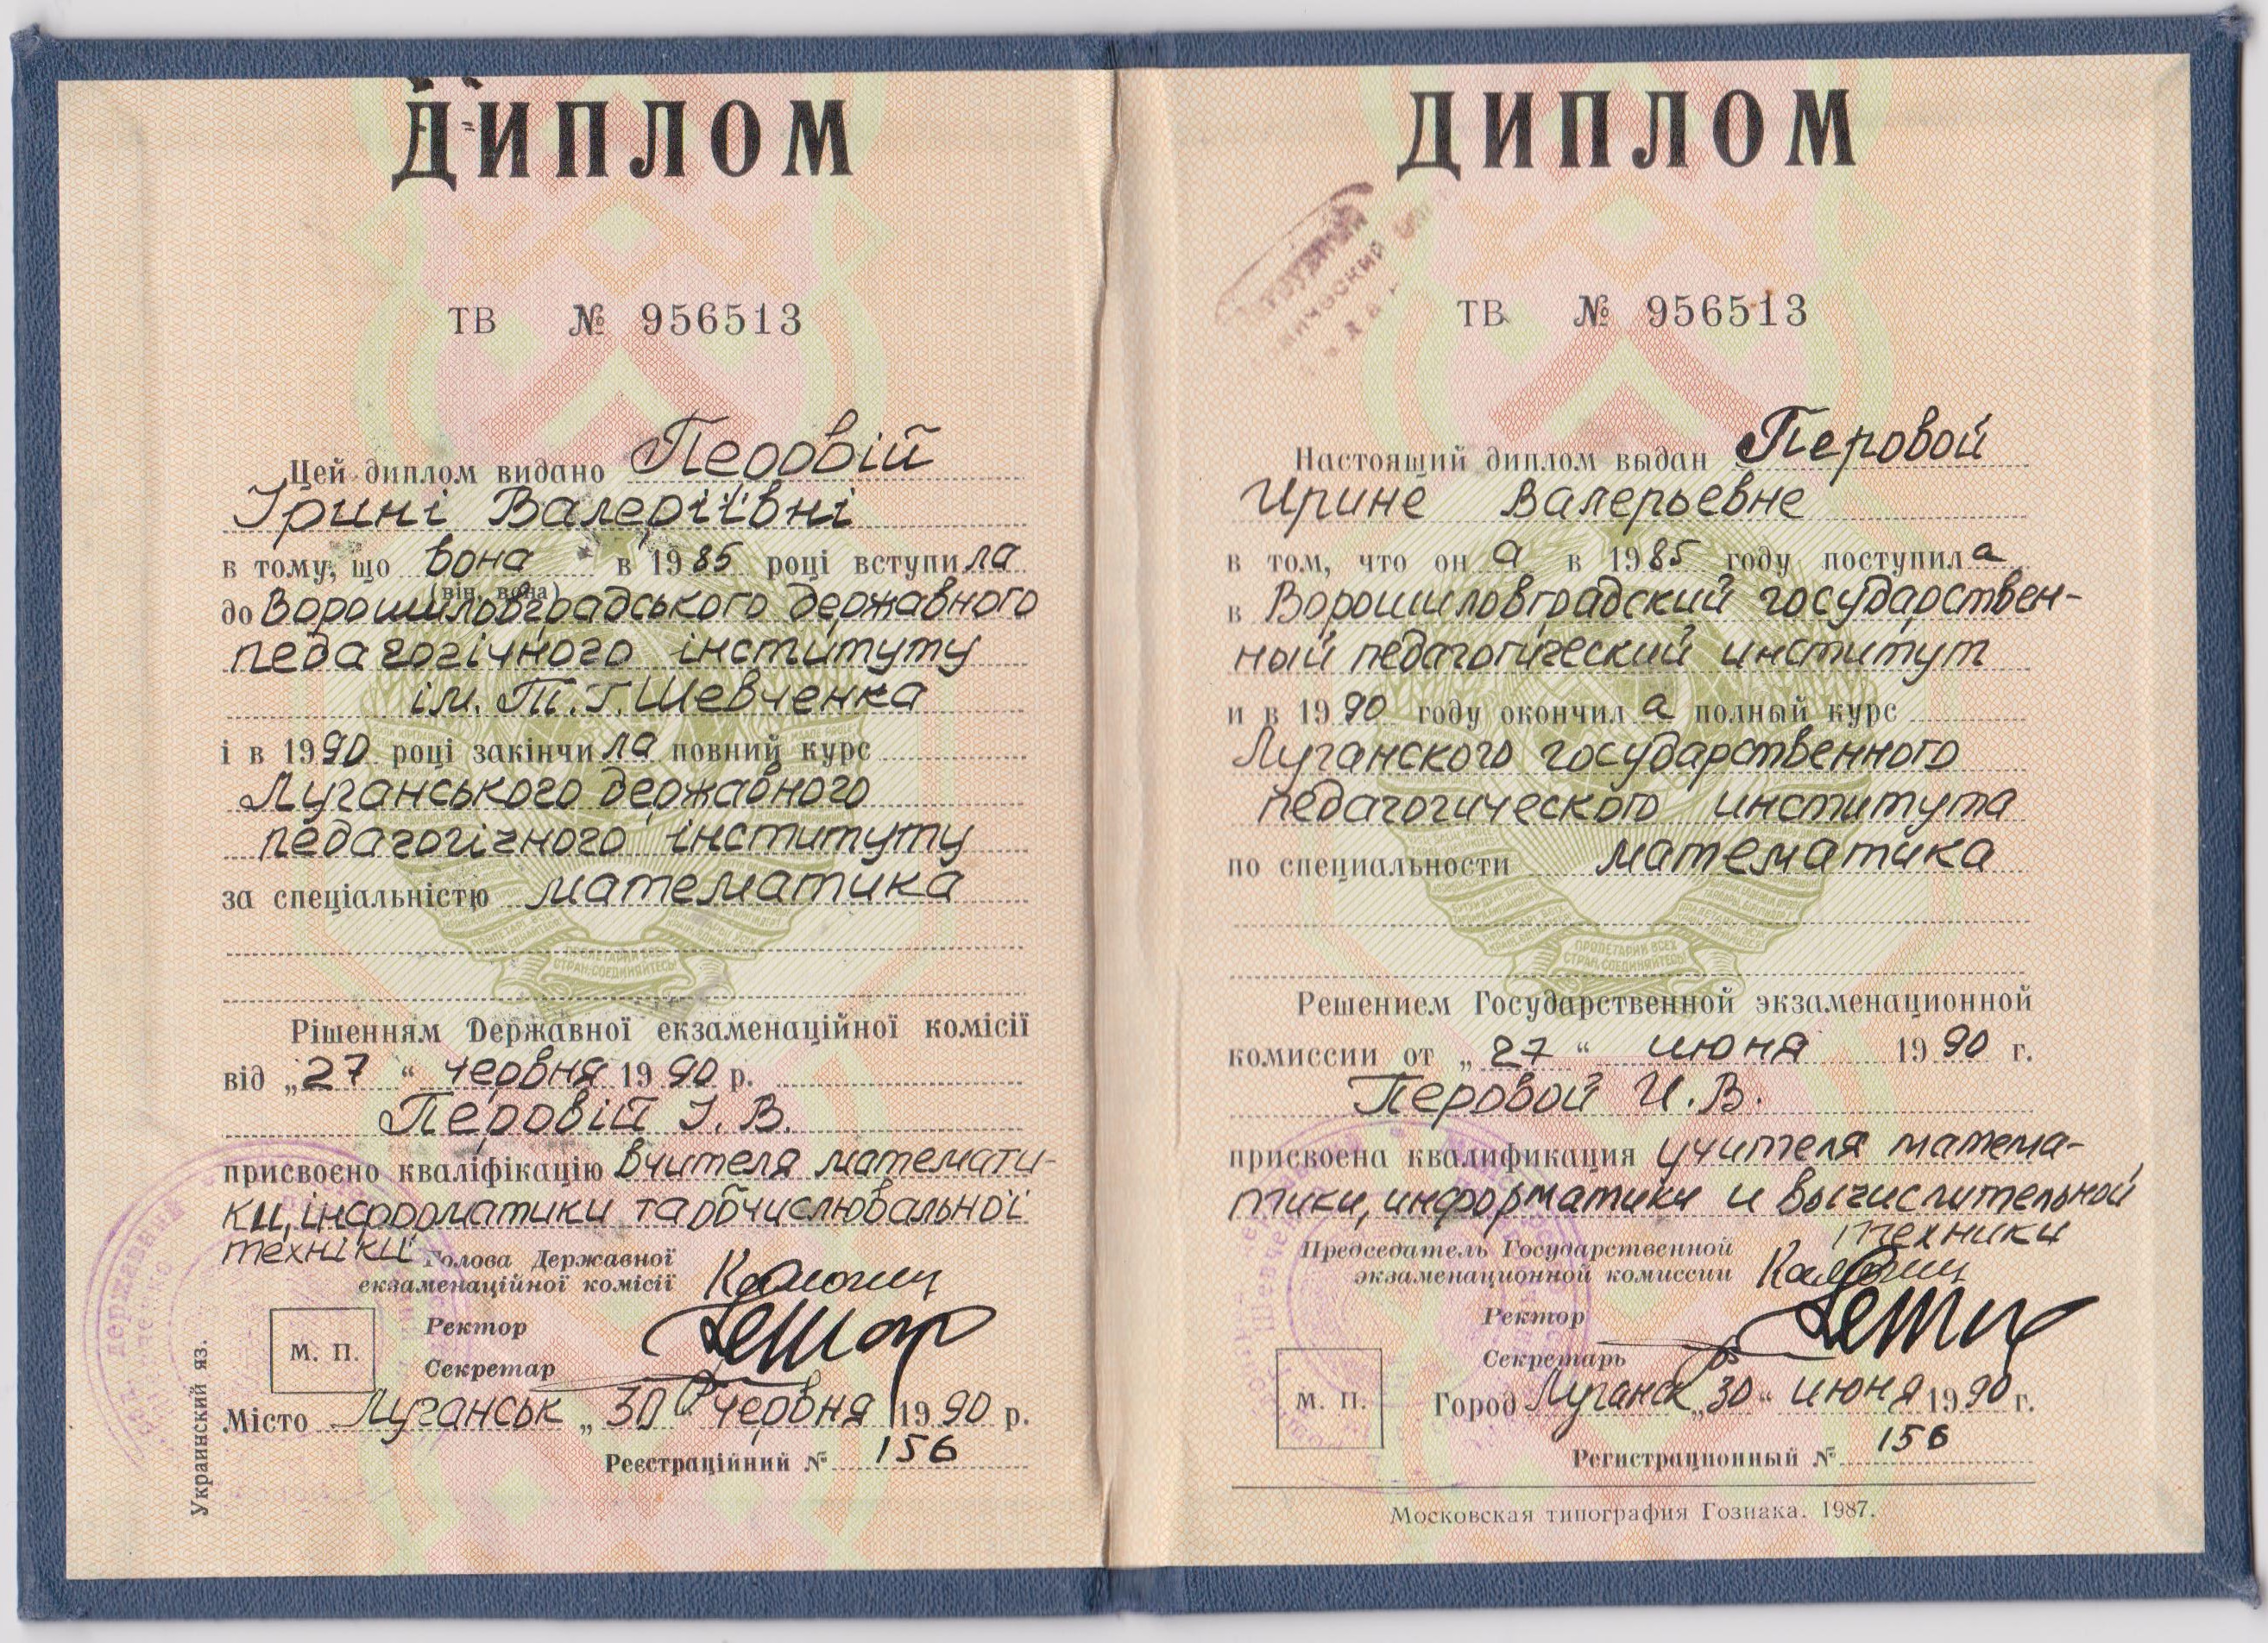 ДИПЛОМ
ТВ № 956513
Цей диплом видано Перовій
Ірині Валеріївні
в тому, що вона в 1985 році вступила
(він, вона)
до Ворошиловградського державного
педагогічного інституту
ім. Т.Г. Шевченка
і в 1990 році закінчила повний курс
Луганського державного
педагогічного інституту
за спеціальністю математика
Рішенням Державної екзаменаційної комісії
від „27“ червня 1990 р.
Перовій І. В.
присвоєно кваліфікацію вчителя математи-
ки, інформатики та обчислювальної
техніки
Голова Державної
екзаменаційної комісії
Ректор
М. П.
Секретар
Місто Луганськ „30“ червня 1990 р.
Реєстраційний № 156
Украинский яз.
ДИПЛОМ
ТВ № 956513
Настоящий диплом выдан Перовой
Ирине Валерьевне
в том, что он а в 1985 году поступила
в Ворошиловградский государствен-
ный педагогический институт
и в 1990 году окончил а полный курс
Луганского государственного
педагогического института
по специальности математика
ПРОЛЕТАРИИ ВСЕХ
СТРАН, СОЕДИНЯЙТЕСЬ!
Решением Государственной экзаменационной
комиссии от „27“ июня 1990 г.
Перовой И. В.
присвоена квалификация учителя матема-
тики, информатики и вычислительной
техники
Председатель Государственной
экзаменационной комиссии
Ректор
Секретарь
М. П.
Город Луганск „30“ июня 1990 г.
Регистрационный № 156
Московская типография Гознака. 1987.